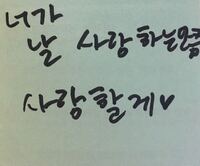 너가
날 사랑하는
사랑할게♥